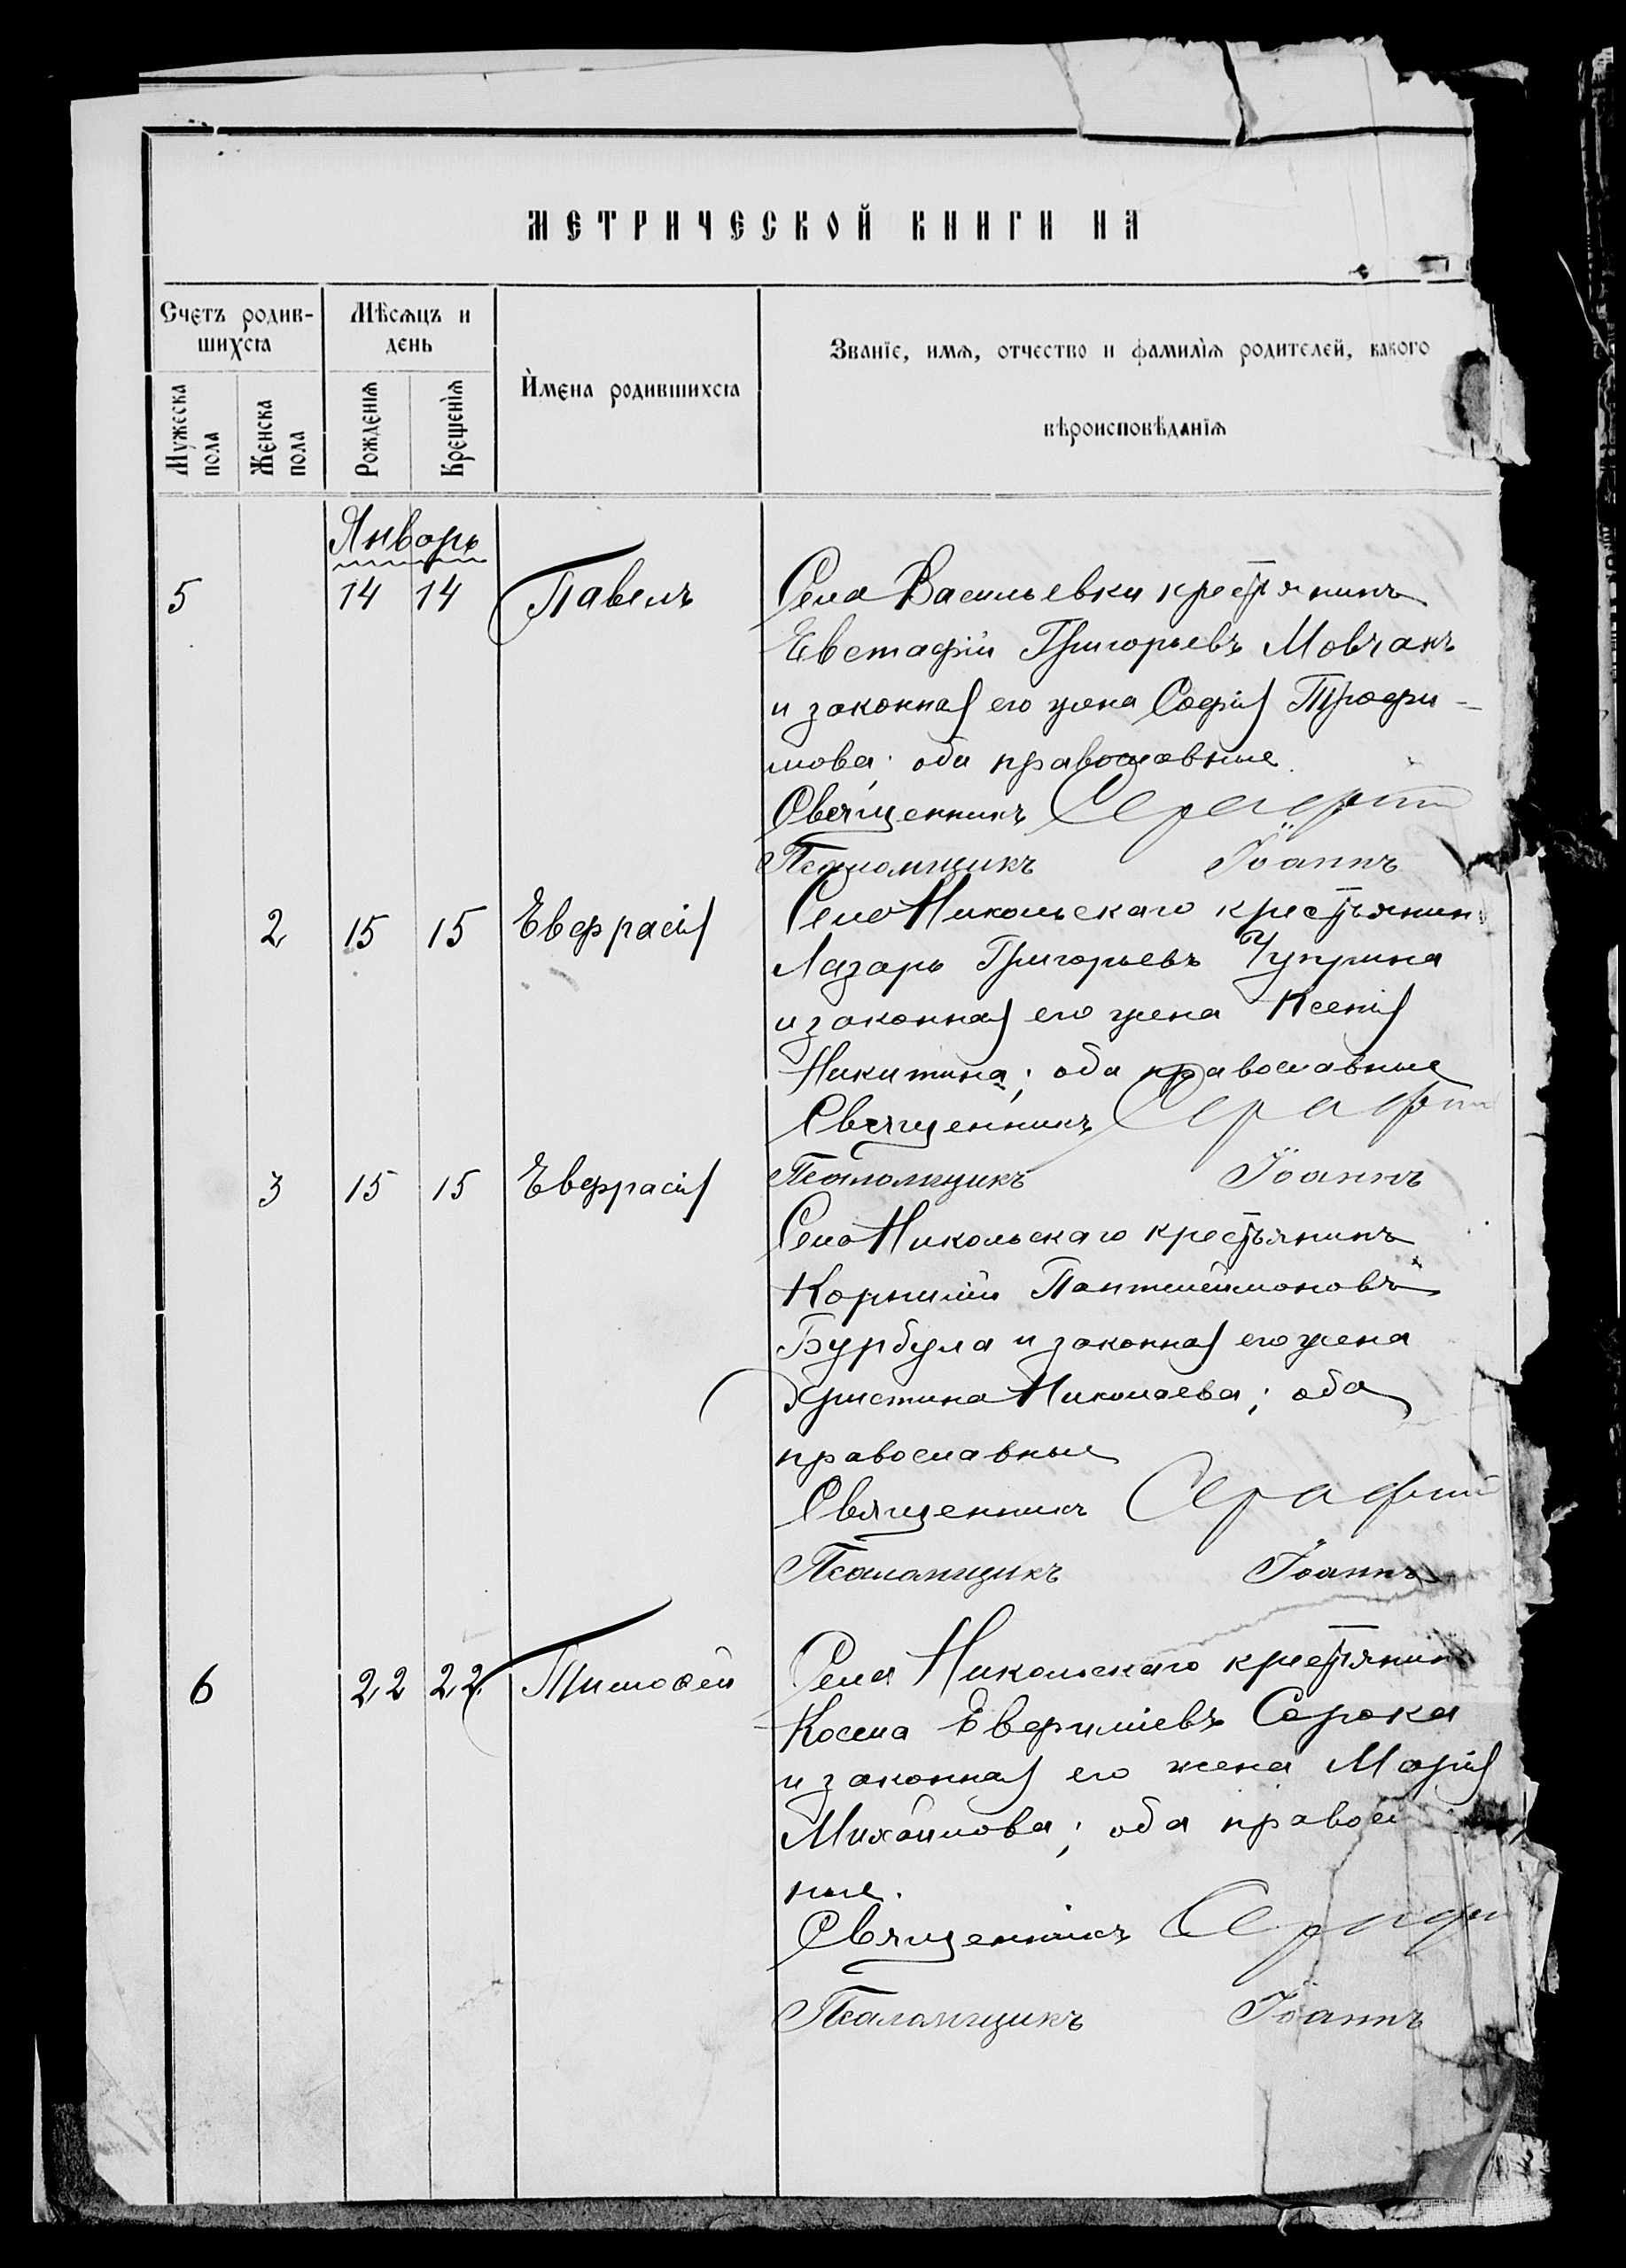 МЕТРИЧЕСКОЙ КНИГИ НА
Счетъ родив-
шихся
Мѣсяцъ и
день
Имена родившихся
Званіе, имя, отчество и фамилія родителей, какого
вѣроисповѣданія
Мужеска
пола
Женска
пола
Рожденія
Крещенія
Январь
5 14 14 Павелъ Села Васильевки крестьянинъ
Евстафій Григорьевъ Мовчанъ
и законная его жена Софія Трофи-
мова; оба православные.
Священникъ Серафим
Псаломщикъ Іоаннъ
2 15 15 Евфрасія Села Никольскаго крестьянин
Лазарь Григорьевъ Чуприна
и законная его жена Ксенія
Никитина; оба православные
Священникъ Серафим
3 15 15 Евфрасія Псаломщикъ Іоаннъ
Села Никольскаго крестьянинъ
Корнилій Пантелеймоновъ
Бурбула и законная его жена
Христина Николаева; оба
православные
Священникъ Серафим
Псаломщикъ Іоаннъ
6 22 22 Тимоѳей Села Никольскаго крестьянин
Косма Евфиміевъ Сорока
и законная его жена Марія
Михайлова; оба правосл
ные.
Священникъ Серафи
Псаломщикъ Іоаннъ